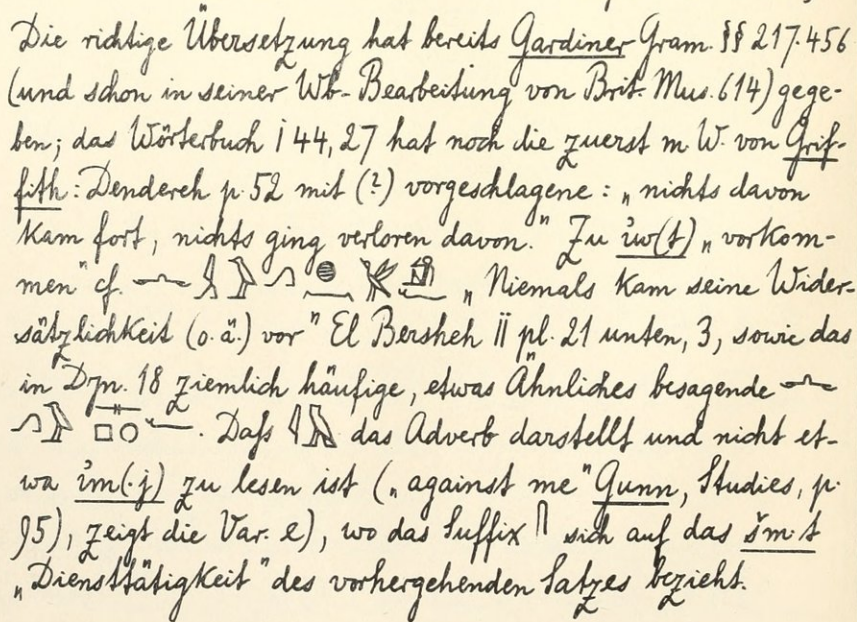 Die richtige Übersetzung hat bereits Gardiner Gram. §§ 217.456
(und schon in seiner Wb-Bearbeitung von Brit. Mus. 614) gege-
ben; das Wörterbuch I 44, 27 hat noch die zuerst m. W. von Grif-
fith: Dendereh p. 52 mit (?) vorgeschlagene: „nichts davon
kam fort, nichts ging verloren davon." Zu ἰw(t) „vorkom-
men" cf. „Niemals kam seine Wider-
sätzlichkeit (o.ä.) vor" El Bersheh II pl. 21 unten, 3, sowie das
in Dyn. 18 ziemlich häufige, etwas Ähnliches besagende
. Daß das Adverb darstellt und nicht et-
wa ἰm(·j) zu lesen ist („against me" Gunn, Studies, p.
95), zeigt die Var. e), wo das Suffix sich auf das šm·t
„Diensttätigkeit" des vorhergehenden Satzes bezieht.